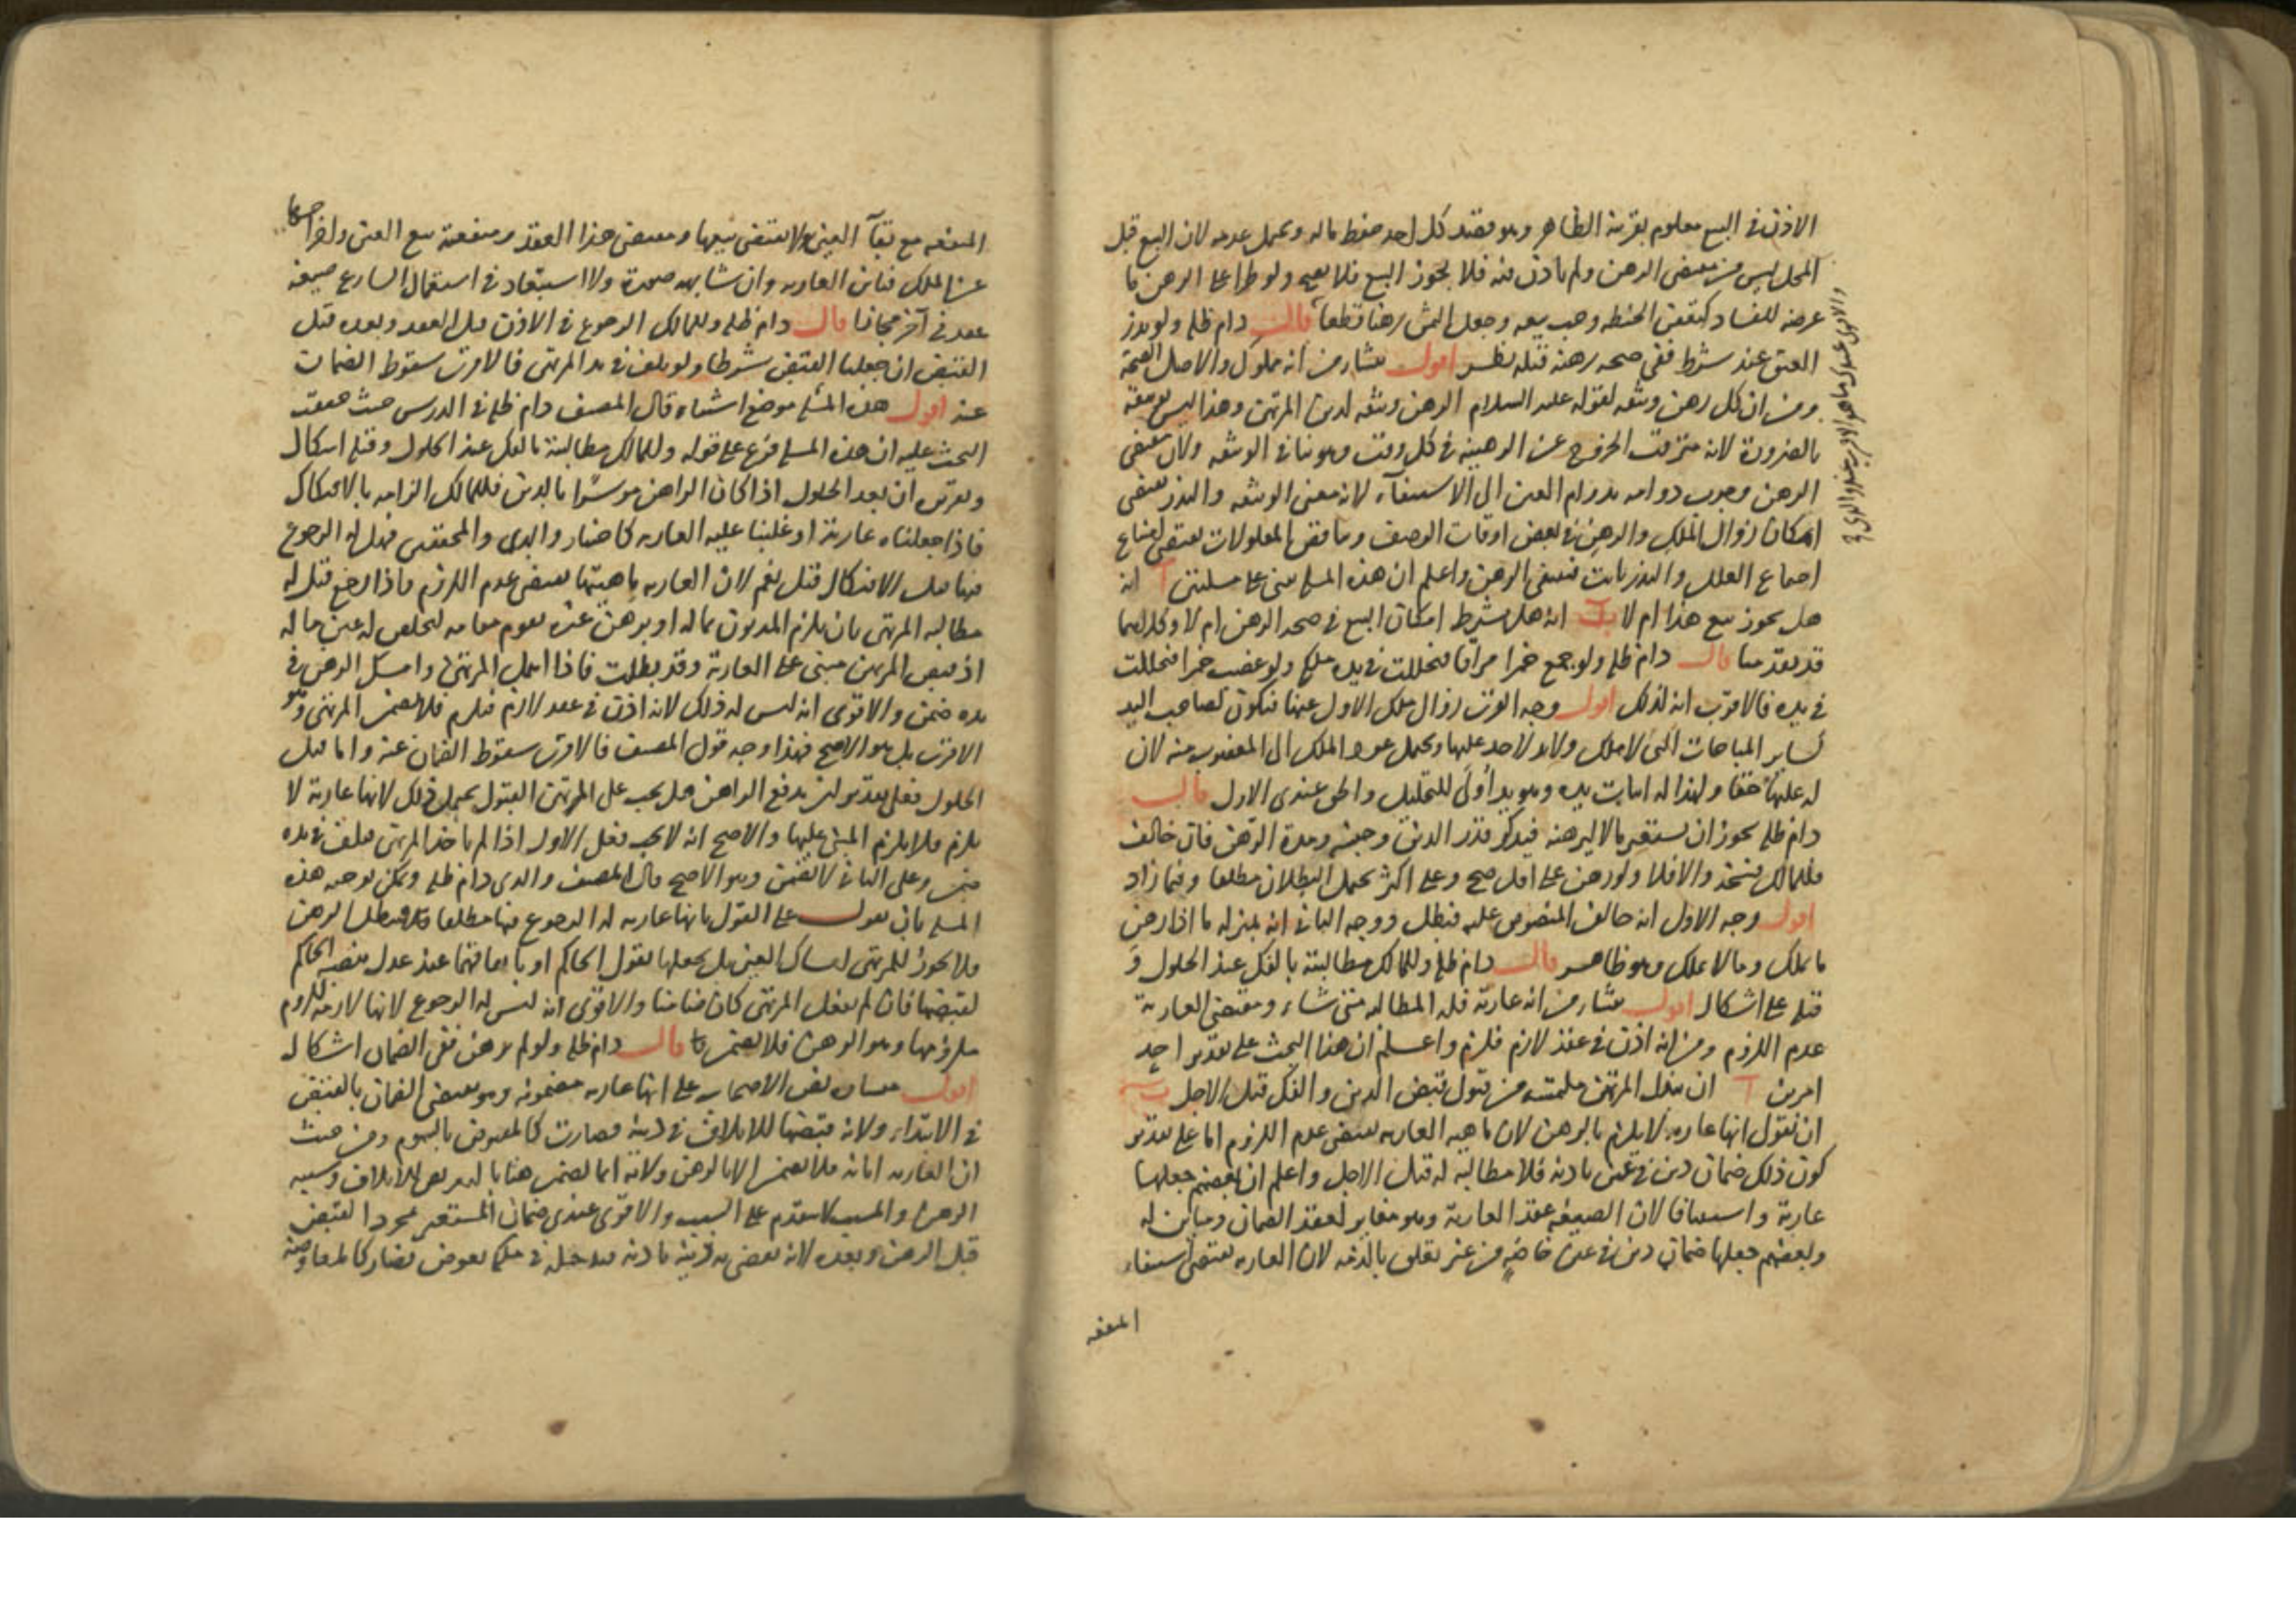 الاذن في البيع معلوم بقرينة الظاهر وهو قصد كل احد حفظ ماله ويحتمل عدمه لان البيع قبل
المحل ليس من مقتضى الرهن ولم ياذن فيه فلا يجوز البيع فلا يصح ولو طرأ على الرهن ما
عرضه للفساد كتعفن الحنطة وجب بيعه وجعل الثمن رهنا قطعا قال دام ظله ولو نذر
العتق عند شرط ففي صحة رهنه قبله نظر اقول ينشأ من انه مملوك والاصل الصحة
ومن ان كل رهن وثيقة لقوله عليه السلام الرهن وثيقة لدين المرتهن وهذا ليس بوثيقة
بالضرورة لانه متوقت الخروج عن الرهينة في كل وقت وهو ينافي الوثيقة ولان مقتضى
الرهن وجوب دوامه بدوام العين الى الاستيفاء لانه معنى الوثيقة والنذر يقتضي
امكان زوال الملك والرهن في بعض اوقات الوصف وتناقض المعلولات يقتضي امتناع
اجتماع العلل والنذر ثابت فينتفي الرهن واعلم ان هذه المسئلة مبني على مسئلتين آ انه
هل يجوز بيع هذا ام لا ب انه هل يشترط امكان البيع في صحة الرهن ام لا وكلاهما
قد تقدمتا قال دام ظله ولو جمع خمرا مراقا فتخللت في يده ملكه ولو غصب خمرا فتخللت
في يده فالاقرب انه كذلك اقول وجه القرب زوال ملك الاول عنها فتكون لصاحب اليد
كساير المباحات التي لا ملك ولا يد لاحد عليها ويحتمل عود الملك الى المغصوب منه لان
له عليها حقا ولهذا له اثبات يده وهو يد اولى للتخليل والحق عندي الاول قال
دام ظله يجوز ان يستعير مالا ليرهنه فيذكر قدر الدين وجنسه ومدة الرهن فان خالف
فللمالك فسخه والا فلا ولو رهن على اقل صح وعلى اكثر يحتمل البطلان مطلقا وفيما زاد
اقول وجه الاول انه خالف المنصوص عليه فيبطل ووجه الثاني انه بمنزلة ما اذا رهن
ما يملك وما لا يملك وهو ظاهر قال دام ظله وللمالك مطالبته بالفك عند الحلول و
قبله على اشكال اقول ينشأ من انه عارية فله المطالبة متى شاء ومقتضى العارية
عدم اللزوم ومن انه اذن في عقد لازم فلزم واعلم ان هذا البحث على تقدير احد
امرين آ ان يبذل المرتهن ما يمتنع من قبول قبض الدين والفك قبل الاجل ب
ان نقول انها عارية لا يلزم بالرهن لان ماهية العارية يقتضي عدم اللزوم اما على تقدير
كون ذلك ضمان دين في عين باذنه فلا مطالبة له قبل الاجل واعلم ان بعضهم جعلها
عارية واستضعافا لان الصيغة عقد العارية وهو مغاير لعقد الضمان ومباين له
وبعضهم جعلها ضمان دين في عين خاصة من غير تعلق بالذمة لان العارية يقتضي استيفاء
المنفعة
المنفعة مع بقاء العين ولا يقتضي بيعها ومقتضى هذا العقد ومنفعته بيع العين واخراجها
عن الملك فباين العارية وان شابهه صورة ولا استبعاد في استعمال الشارع صيغة
عقد في آخر مجازا قال دام ظله وللمالك الرجوع في الاذن قبل العقد وبعده قبل
القبض ان جعلنا القبض شرطا ولو تلف في يد المرتهن فالاقرب سقوط الضمان
عنه اقول هذه المسئلة موضع اشتباه قال المصنف دام ظله في الدرس حيث حققت
البحث عليه ان هذه المسئلة فرع على قوله وللمالك مطالبته بالفك عند الحلول وقبله اشكال
وتقريره ان بعد الحلول اذا كان الراهن موسرا بالدين فللمالك الزامه بالافتكاك
فاذا جعلناه عارية او غلبنا عليه العارية كاختيار والدي والمحققين فهل له الرجوع
فيها قبل الافتكاك قيل نعم لان العارية ماهيتها يقتضي عدم اللزوم فاذا رجع قيل له
مطالبة المرتهن بان يلزم المديون بماله او يرهن غيره يقوم مقامه ليخلص له عين ماله
اذ قبض المرتهن مبني على العارية وقد بطلت فاذا اهمل المرتهن وامسك الرهن في
يده ضمن والاقوى انه ليس له ذلك لانه اذن في عقد لازم فيلزم فلا يضمن المرتهن وهو
الاقرب بل هو الاصح فهذا وجه قول المصنف فالاقرب سقوط الضمان عنه واما قبل
الحلول فعلى تقدير ان يدفع الراهن هل يجب على المرتهن القبول يحتمل ذلك لانها عارية لا
يلزم فلا يلزم المبني عليها والاصح انه لا يجب فعلى الاول اذا لم ياخذ المرتهن فتلف في يده
ضمن وعلى الثاني لا يضمن وهو الاصح قال المصنف والدي دام ظله ويمكن توجيه هذه
المسئلة بان نقول على القول بانها عارية له الرجوع فيها مطلقا فيبطل الرهن
فلا يجوز للمرتهن امساك العين بل يجعلها بقول الحاكم او باتفاقهما عند عدل ينصبه الحاكم
لقبضها فان لم يفعل المرتهن كان ضامنا والاقوى انه ليس له الرجوع لانها لازمة للزوم
ملزومها وهو الرهن فلا يضمن قال دام ظله ولو لم يرهن ففي الضمان اشكال
اقول بعض الاصحاب على انها عارية مضمونة وهو يقتضي الضمان بالقبض
في الابتداء ولانه قبضها للاتلاف في دينه فصارت كالمقبوض بالسوم ومن حيث
ان العارية امانة فلا يضمن الا بالرهن ولانه انما يضمن هنا بالتعريض للاتلاف وسببه
الرهن والمسبب لا يتقدم على السبب والاقوى عندي ضمان المستعير بمجرد القبض
قبل الرهن وبعده لانه يقضي به دينه باذنه فيدخل في ملكه بعوض فصار كالمعاوضة